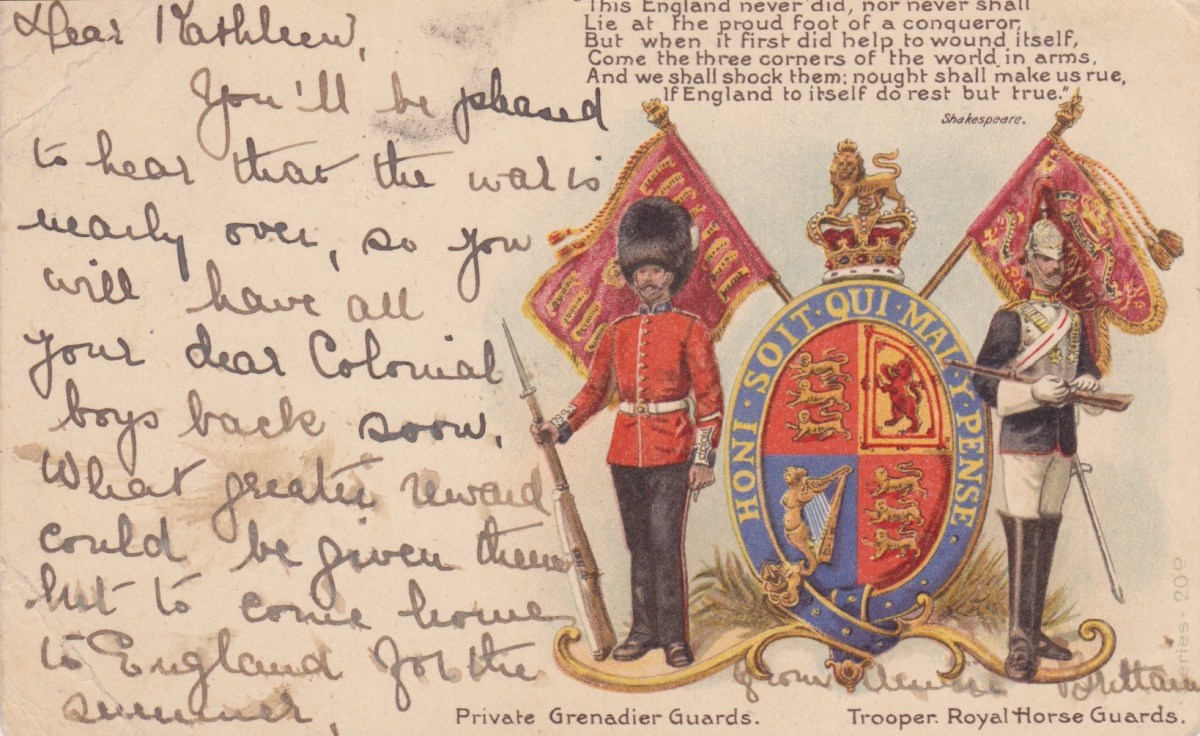 Dear Kathleen,
You'll be pleased
to hear that the war is
nearly over, so you
will have all
your dear Colonial
boys back soon.
What greater reward
could be given them
but to come home
to England for the
summer,
from Brittain
"This England never did, nor never shall
Lie at the proud foot of a conqueror,
But when it first did help to wound itself,
Come the three corners of the world in arms,
And we shall shock them; nought shall make us rue,
If England to itself do rest but true."
Shakespeare.
HONI · SOIT · QUI · MAL · Y · PENSE
Private Grenadier Guards.
Trooper. Royal Horse Guards.